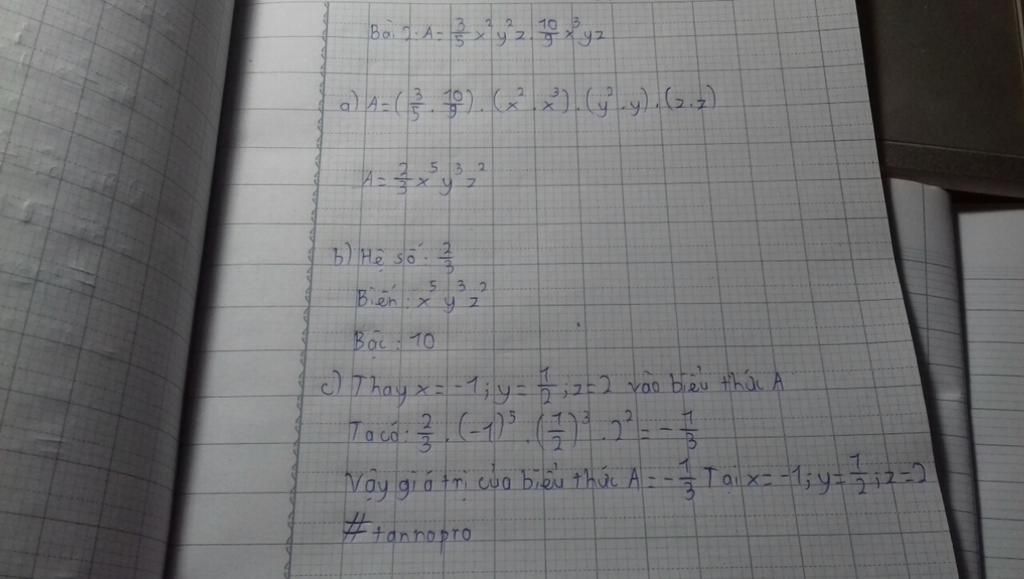 Bài 2: A = 3/5 x²y²z . 10/9 x³yz
a) A = (3/5 . 10/9) . (x² . x³) . (y² . y) . (z . z)
A = 2/3 x⁵y³z²
b) Hệ số : 2/3
Biến : x⁵y³z²
Bậc : 10
c) Thay x = -1 ; y = 1/2 ; z = 2 vào biểu thức A
Ta có : 2/3 . (-1)⁵ . (1/2)³ . 2² = - 1/3
Vậy giá trị của biểu thức A = - 1/3 Tại x = -1 ; y = 1/2 ; z = 2
# tannopro